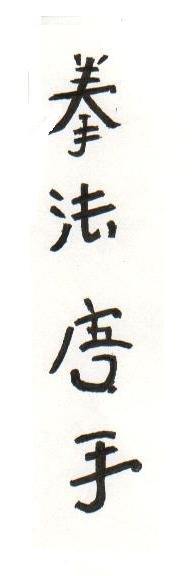 拳法唐手